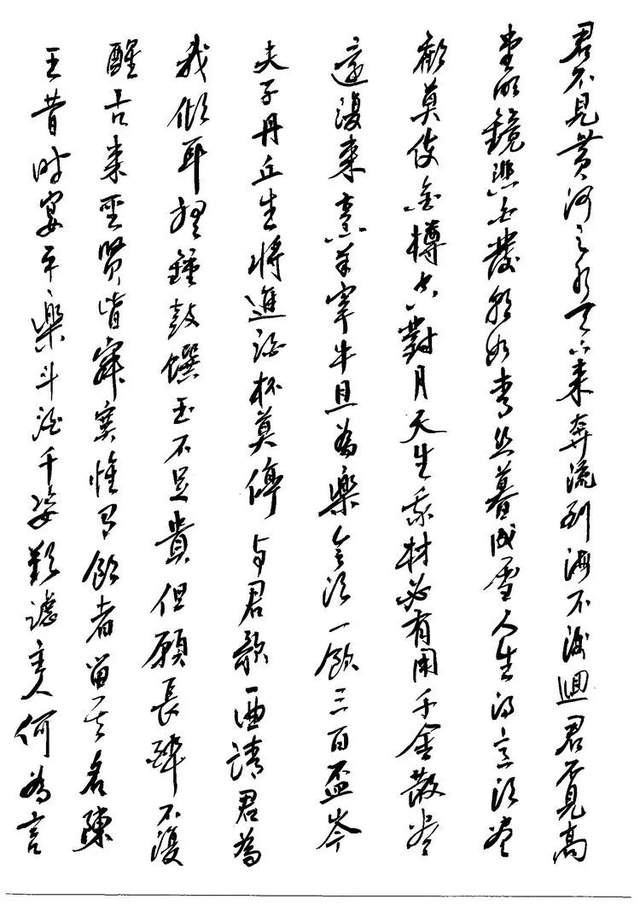 君不見黄河之水天上来奔流到海不復迴君不見高
堂明鏡悲白髮朝如青丝暮成雪人生得意須盡
歡莫使金樽空對月天生我材必有用千金散盡
還復来烹羊宰牛且為樂會須一飲三百盃岑
夫子丹丘生將進酒杯莫停与君歌一曲請君為
我傾耳聽鍾鼓饌玉不足貴但願長醉不復
醒古来聖賢皆寂寞惟有飲者留其名陳
王昔时宴平樂斗酒千恣歡謔主人何為言